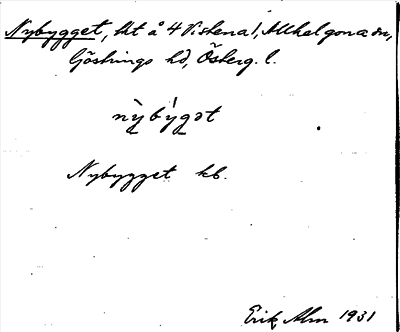 Nybygget, lht å 4 Viskena 1, Allhelgona sn,
Göstrings hd, Österg. l.
nỳbýgət
Nybygget kb.
Erik Alm 1931